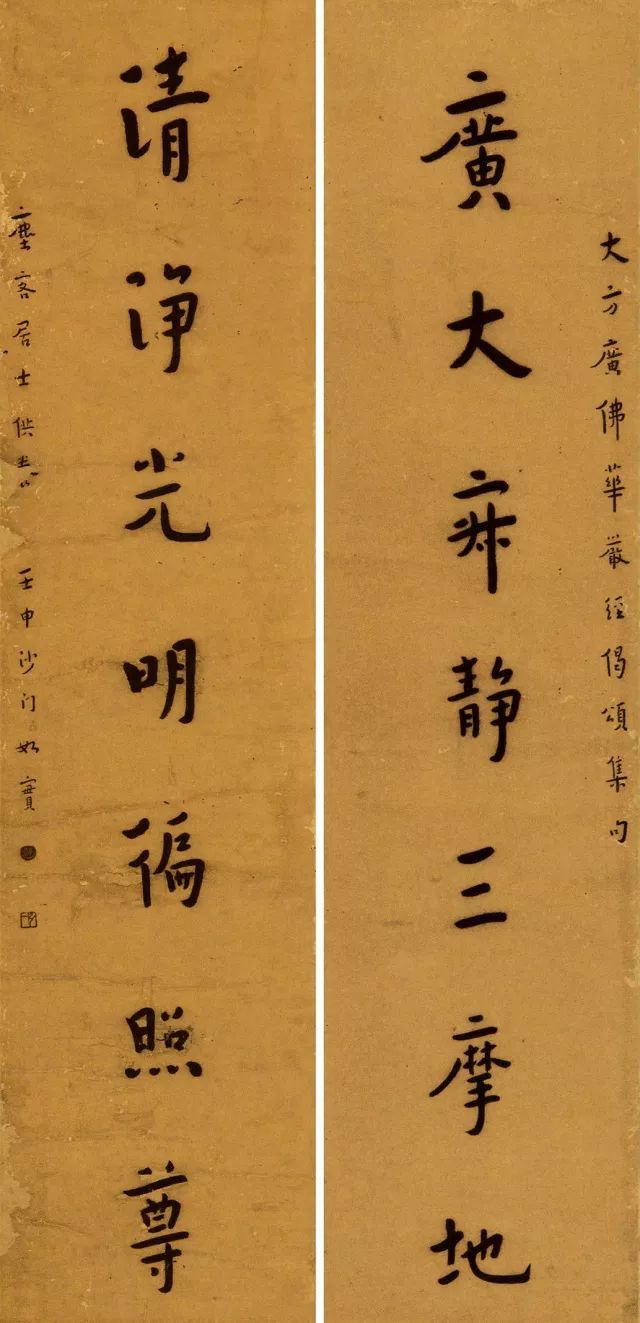 大方廣佛華嚴經偈頌集句
廣大寂静三摩地
清淨光明徧照尊
塵客居士供養
壬申沙门如實